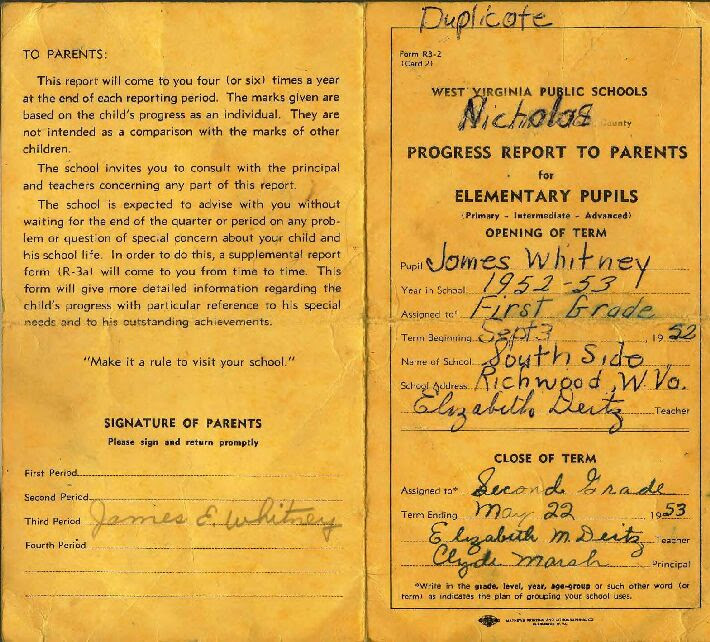 TO PARENTS:
This report will come to you four (or six) times a year
at the end of each reporting period. The marks given are
based on the child's progress as an individual. They are
not intended as a comparison with the marks of other
children.
The school invites you to consult with the principal
and teachers concerning any part of this report.
The school is expected to advise with you without
waiting for the end of the quarter or period on any prob-
lem or question of special concern about your child and
his school life. In order to do this, a supplemental report
form (R-3a) will come to you from time to time. This
form will give more detailed information regarding the
child's progress with particular reference to his special
needs and to his outstanding achievements.
"Make it a rule to visit your school."
SIGNATURE OF PARENTS
Please sign and return promptly
First Period
Second Period
Third Period James E. Whitney
Fourth Period
Duplicate
Form R3-2
(Card 2)
WEST VIRGINIA PUBLIC SCHOOLS
Nicholas County
PROGRESS REPORT TO PARENTS
for
ELEMENTARY PUPILS
(Primary - Intermediate - Advanced)
OPENING OF TERM
Pupil James Whitney
Year in School 1952-53
Assigned to* First Grade
Term Beginning Sept 3, 1952
Name of School South Side
School Address Richwood, W. Va.
Elizabeth Deitz Teacher
CLOSE OF TERM
Assigned to* Second Grade
Term Ending May 22 1953
Elizabeth M. Deitz Teacher
Clyde Marsh Principal
*Write in the grade, level, year, age-group or such other word (or
term) as indicates the plan of grouping your school uses.